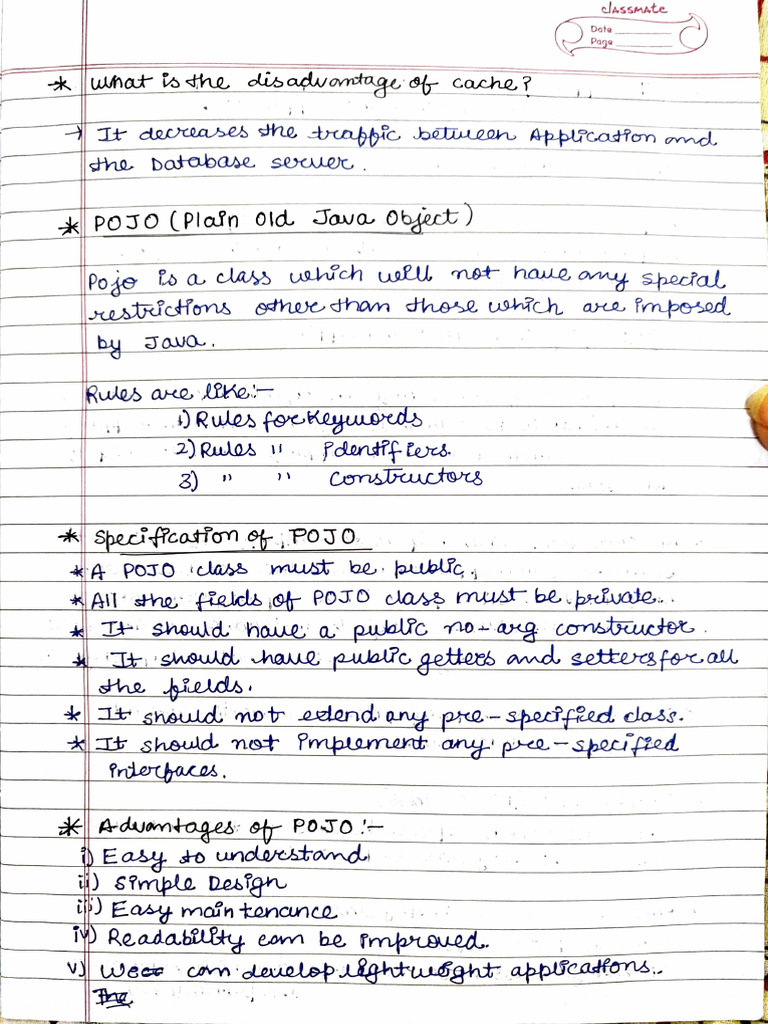 classmate
Date
Page
* What is the disadvantage of cache?
→ It decreases the traffic between Application and
the Database server.
* POJO (Plain Old Java Object)
Pojo is a class which will not have any special
restrictions other than those which are imposed
by Java.
Rules are like:-
1) Rules for keywords
2) Rules " identifiers.
3) " " constructors
* Specification of POJO
* A POJO class must be public.
* All the fields of POJO class must be private.
* It should have a public no-arg constructor.
* It should have public getters and setters for all
the fields.
* It should not extend any pre-specified class.
* It should not implement any pre-specified
interfaces.
* Advantages of POJO:-
i) Easy to understand
ii) Simple Design
iii) Easy maintenance
iv) Readability can be improved.
v) We can develop lightweight applications.
The